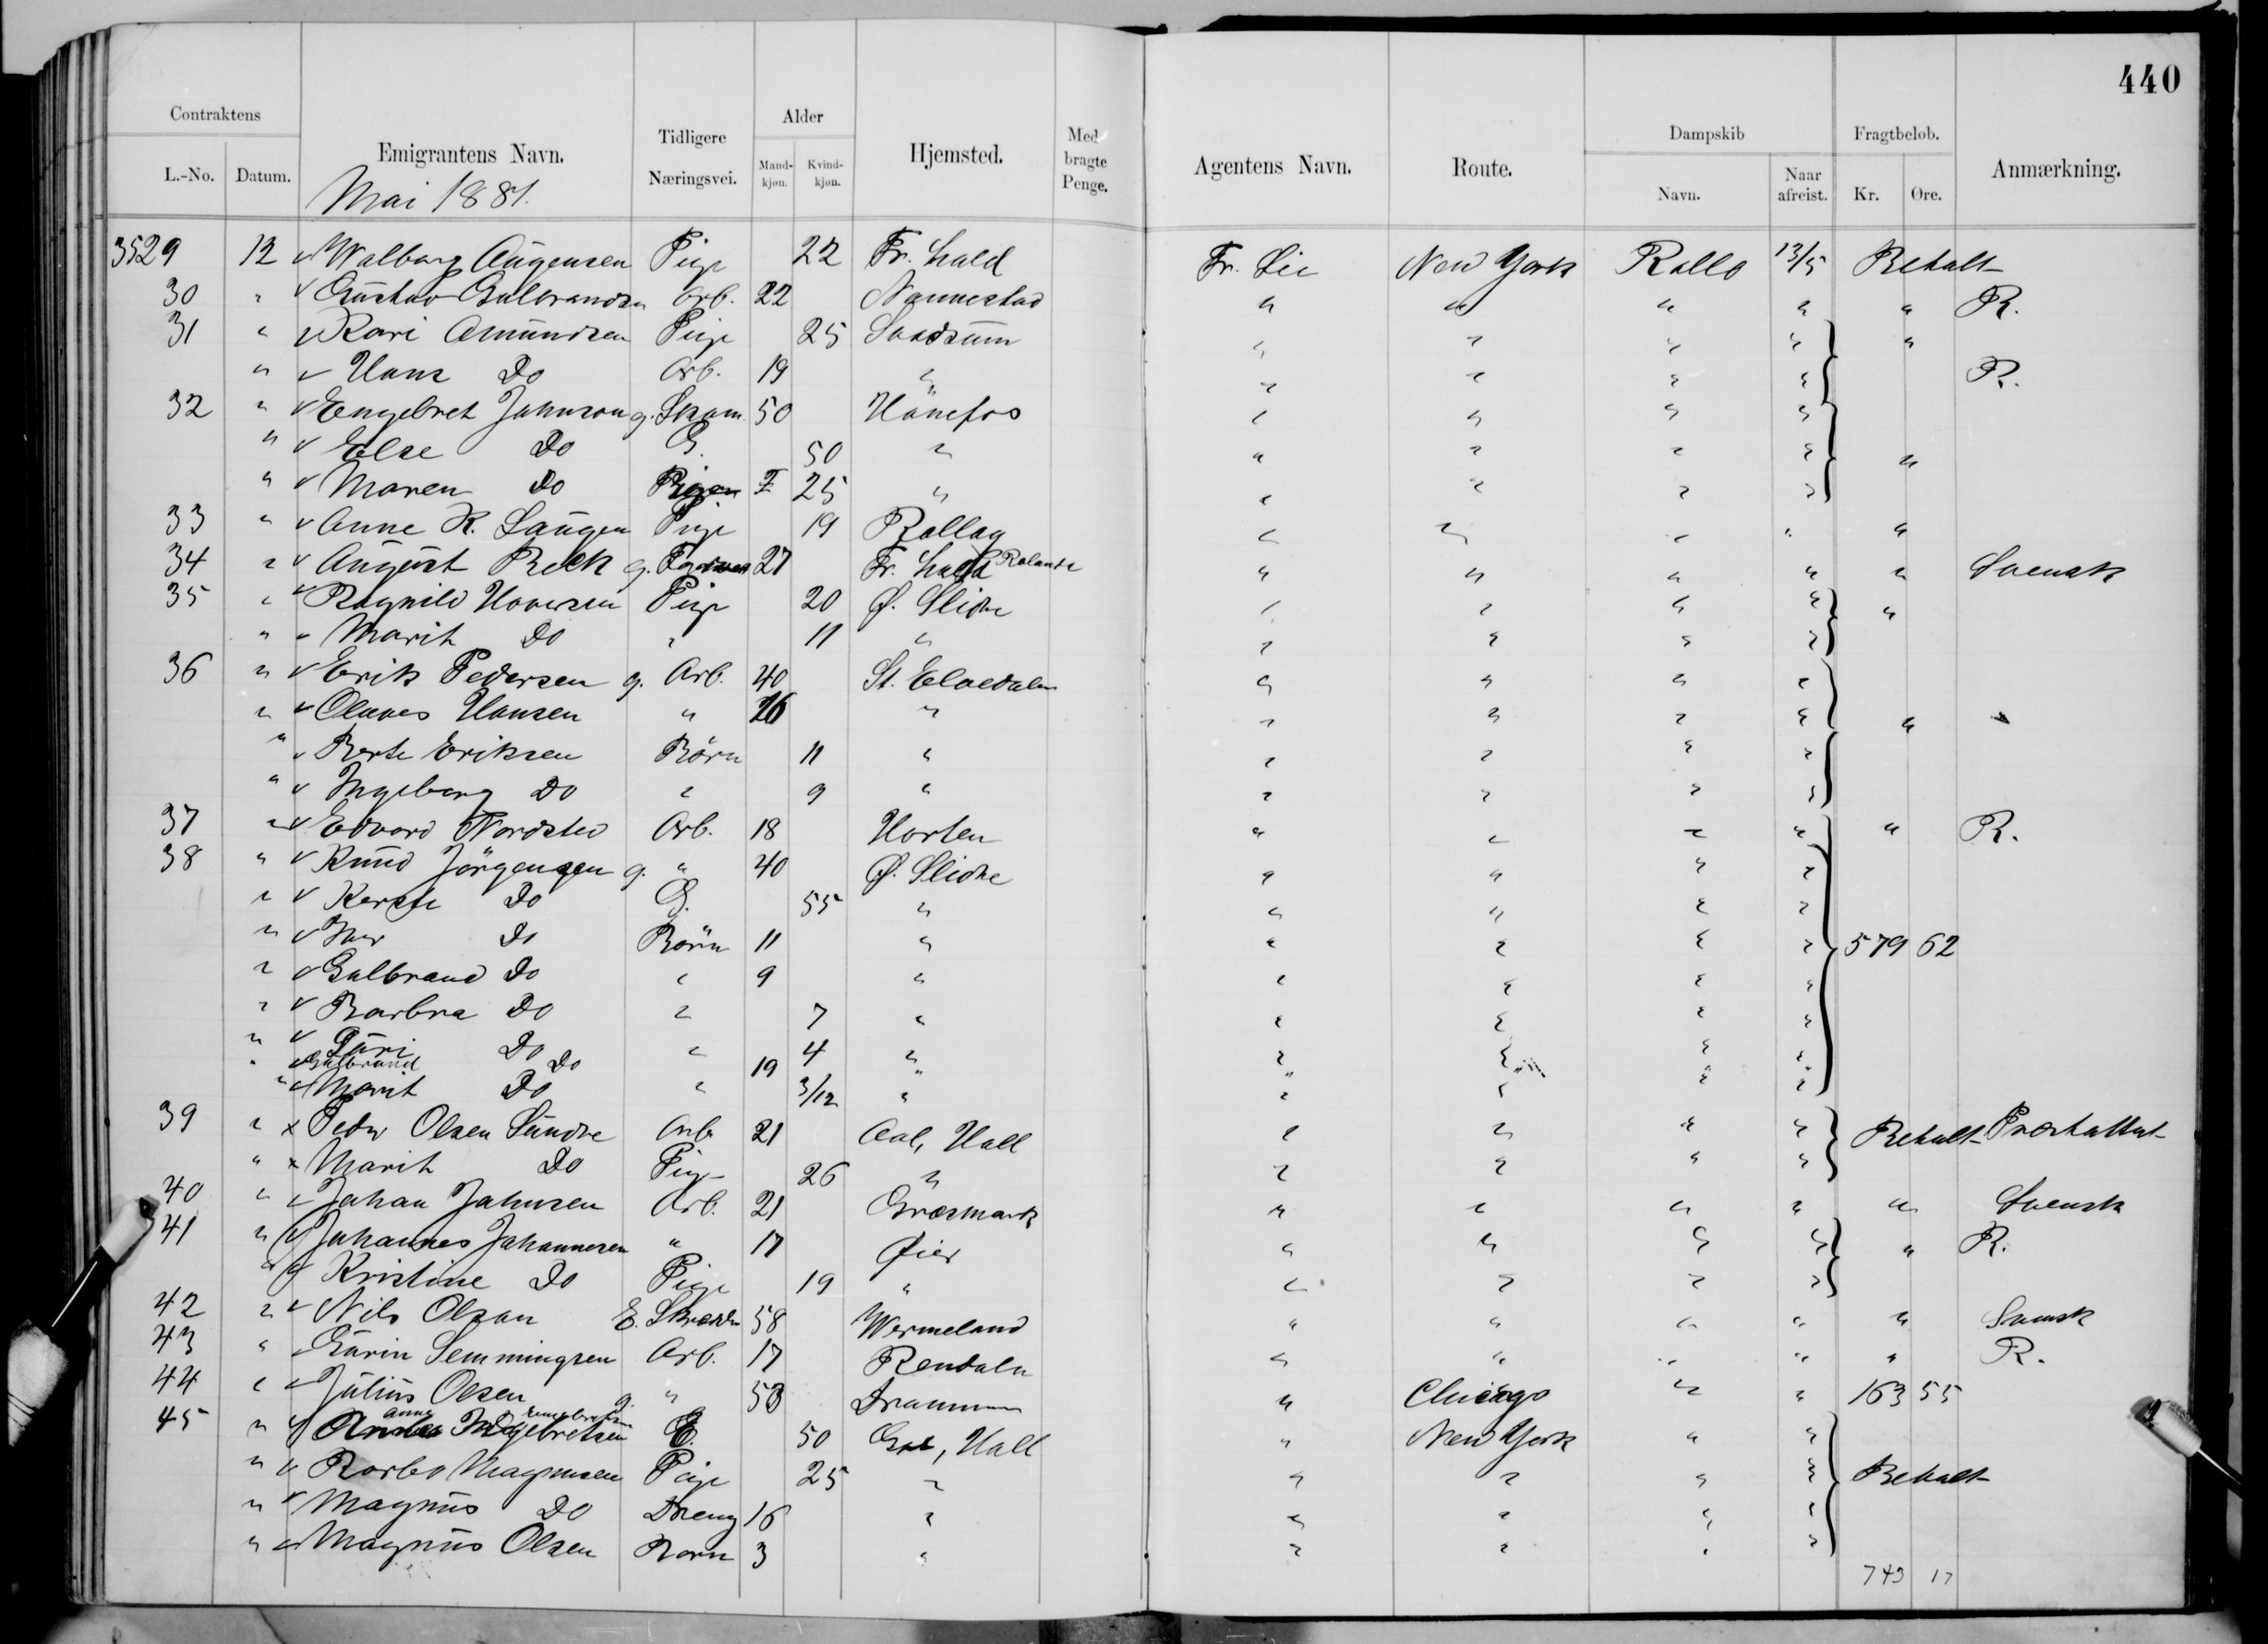 440
Contraktens Emigrantens Navn. Tidligere Næringsvei. Alder Hjemsted. Med bragte Penge. Agentens Navn. Route. Dampskib Fragtbeløb. Anmærkning.
L.-No. Datum. Mand-kjøn. Kvind-kjøn. Navn. Naar afreist. Kr. Øre.
Mai 1881.
3529 12 Walborg Augensen Pige 22 Fr. hald Fr. Lie New York Rollo 13/5 Betalt
30 " Gustav Gulbrandsen Arb. 22 Nannestad " " " " " R.
31 " Kari Amundsen Pige 25 " " " " "
" Hans Do Arb. 19 " " " " " R.
32 " Engebret Johnson g. 50 Hönefos " " " "
" Else Do G. 50 " " " " " "
" Maren Do 25 " " " " "
33 " Anne K. Laugen Pige 19 Rollag " " " " "
34 " August Beck g. 27 Fr. " " " " " Svensk
35 " Ragnild Hoversen Pige 20 Ø. Slidre " " " " "
" Marit Do " 11 " " " " "
36 " Erik Pedersen g. Arb. 40 St. Elvedalen " " " "
" Hansen " 26 " " " " " "
" Berte Eriksen Börn 11 " " " " "
" Ingeborg Do " 9 " " " " "
37 " Edvard Nordsted Arb. 18 Horten " " " " " R.
38 " Knud Jörgensen g. " 40 Ø. Slidre " " " "
" Kersti Do G. 55 " " " " "
" Iver Do Börn 11 " " " " " 579 62
" Gulbrand Do " 9 " " " " "
" Barbra Do " 7 " " " " "
" Guri Do " 4 " " " " "
" Gulbrand Do 19 " " " "
" Marit Do " 3/12 " " " " "
39 " Peder Olsen Sundre Arb 21 Aal, Hall " " " " Betalt
" Marit Do Pige 26 " " " " "
40 " Johan Johnsen Arb. 21 Græsmark " " " " " Svensk
41 " Johannes Johannesen " 17 Øier " " " " " R.
" Kristine Do Pige 19 " " " " "
42 " Nils Olson E. 58 Wermeland " " " " " Svensk
43 " Semmingsen Arb. 17 Rendalen " " " " " R.
44 " Julius Olsen g. " 53 Drammen " Chicago " " 163 55
45 " Anne Engebretsen E. 50 Hall " New York " "
" Magnusen Pige 25 " " " " " Betalt
" Magnus Do Dreng 16 " " " " "
" Magnus Olsen Barn 3 " " " " "
743 17